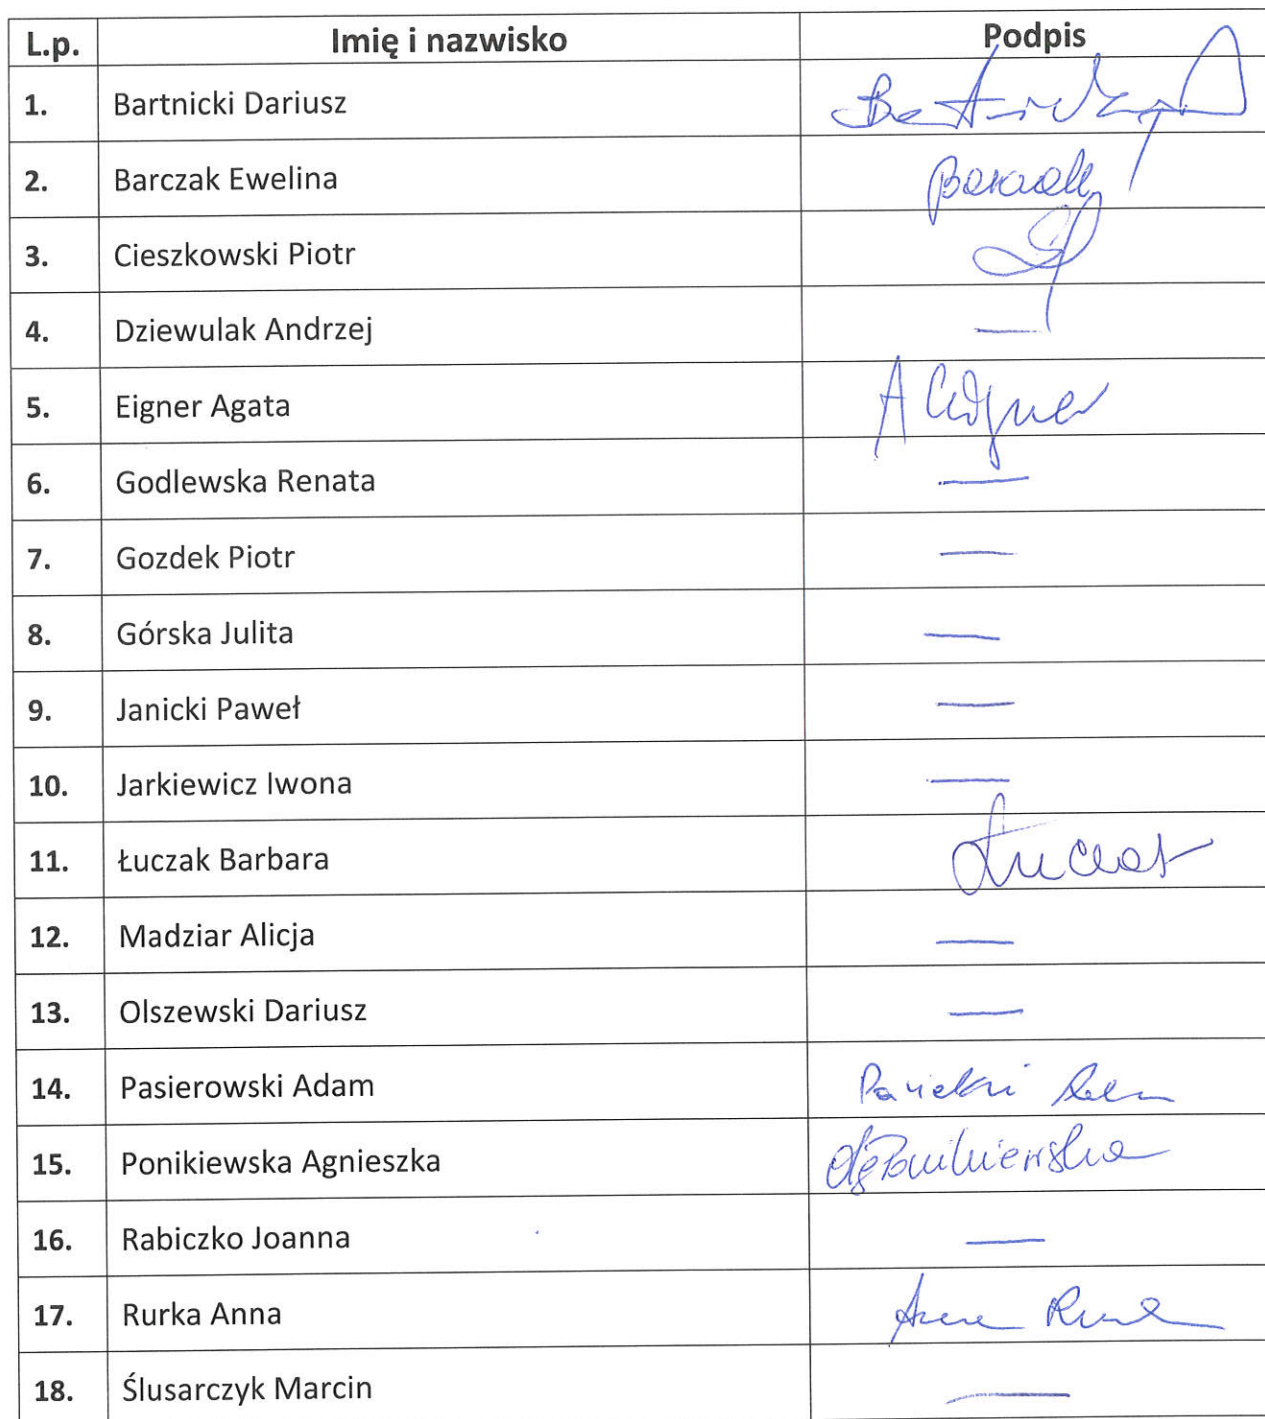 L.p. Imię i nazwisko Podpis
1. Bartnicki Dariusz
2. Barczak Ewelina Barczak
3. Cieszkowski Piotr
4. Dziewulak Andrzej —
5. Eigner Agata A Eigner
6. Godlewska Renata —
7. Gozdek Piotr —
8. Górska Julita —
9. Janicki Paweł —
10. Jarkiewicz Iwona —
11. Łuczak Barbara Łuczak
12. Madziar Alicja —
13. Olszewski Dariusz —
14. Pasierowski Adam
15. Ponikiewska Agnieszka AgPonikiewska
16. Rabiczko Joanna —
17. Rurka Anna Anna Rurka
18. Ślusarczyk Marcin —